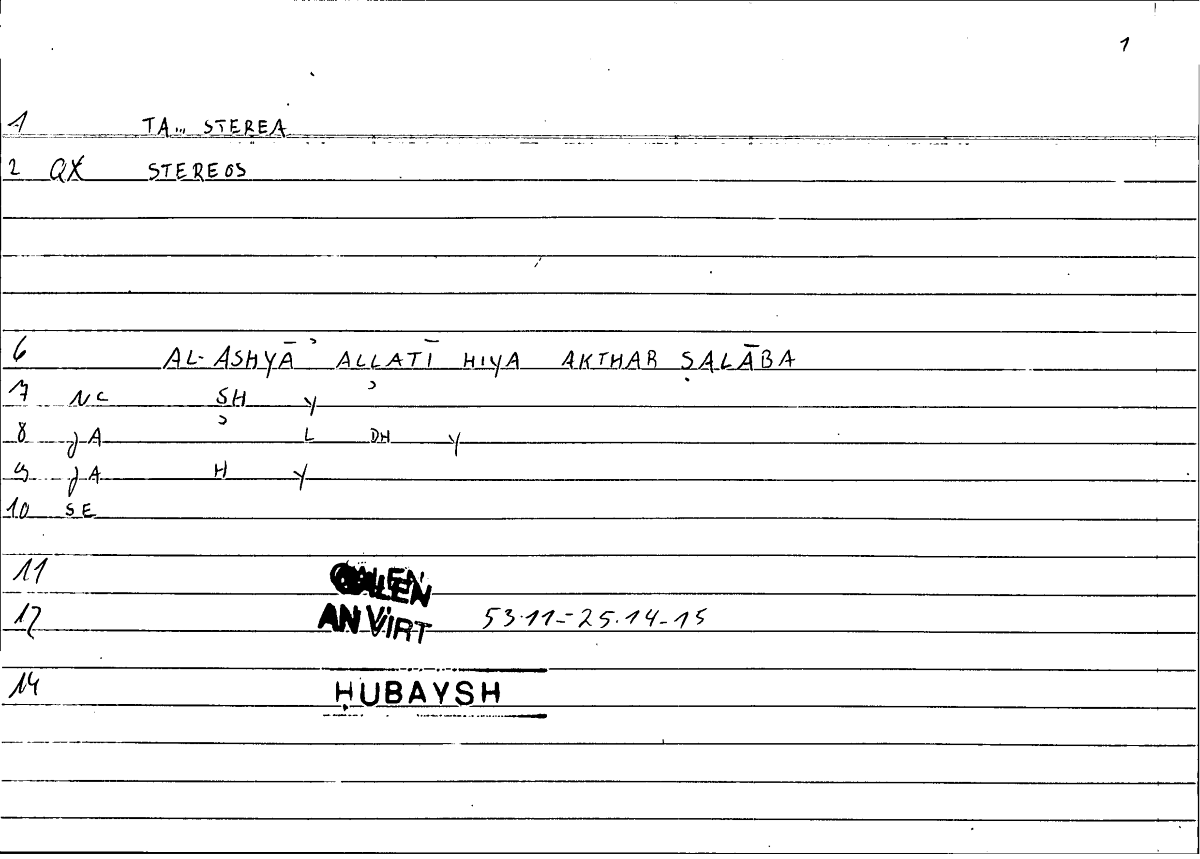 1
1 TA... STEREA
2 QX STEREOS
6 AL-ASHYĀʾ ALLATĪ HIYA AKTHAR ṢALĀBA
7 NC SH Y ʾ
8 JA ʾ L DH Y
9 JA H Y
10 SE
11 GALEN
12 AN VIRT 53.11-25.14-15
14 ḤUBAYSH